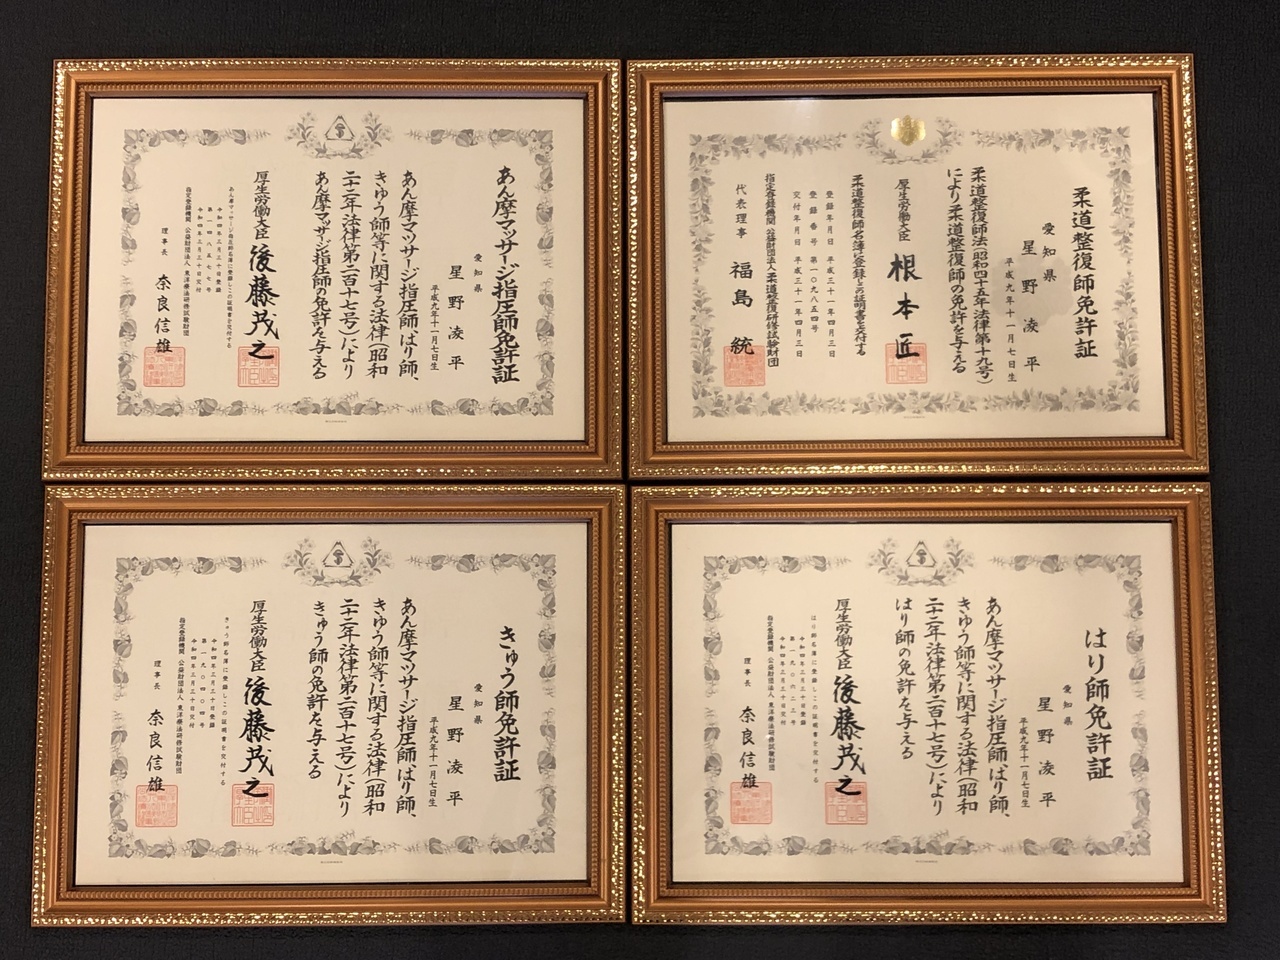 あん摩マッサージ指圧師免許証
愛知県
星野凌平
平成九年十一月七日生
あん摩マツサージ指圧師、はり師、
きゅう師等に関する法律(昭和
二十二年法律第二百十七号)により
あん摩マッサージ指圧師の免許を与える
厚生労働大臣 後藤茂之
あん摩マッサージ指圧師名簿に登録しこの証明書を交付する
令和四年三月三十日登録
令和四年三月三十日交付
指定登録機関 公益財団法人 東洋療法研修試験財団
理事長 奈良信雄
柔道整復師免許証
愛知県
星野凌平
平成九年十一月七日生
柔道整復師法(昭和四十五年法律第十九号)
により柔道整復師の免許を与える
厚生労働大臣 根本匠
柔道整復師名簿に登録しこの証明書を交付する
登録年月日 平成三十一年四月三日
登録番号 第一〇九八五四号
交付年月日 平成三十一年四月三日
指定登録機関 公益財団法人柔道整復研修試験財団
代表理事 福島統
きゅう師免許証
愛知県
星野凌平
平成九年十一月七日生
あん摩マツサージ指圧師、はり師、
きゅう師等に関する法律(昭和
二十二年法律第二百十七号)により
きゅう師の免許を与える
厚生労働大臣 後藤茂之
きゅう師名簿に登録しこの証明書を交付する
令和四年三月三十日登録
第一九〇四〇四号
令和四年三月三十日交付
指定登録機関 公益財団法人 東洋療法研修試験財団
理事長 奈良信雄
はり師免許証
愛知県
星野凌平
平成九年十一月七日生
あん摩マツサージ指圧師、はり師、
きゅう師等に関する法律(昭和
二十二年法律第二百十七号)により
はり師の免許を与える
厚生労働大臣 後藤茂之
はり師名簿に登録しこの証明書を交付する
令和四年三月三十日登録
第一九〇六二三号
令和四年三月三十日交付
指定登録機関 公益財団法人 東洋療法研修試験財団
理事長 奈良信雄